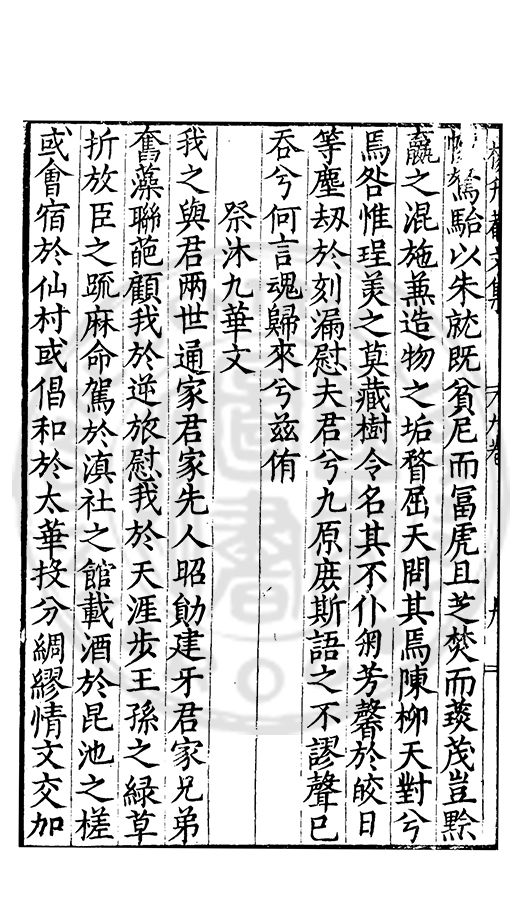 楊升菴文集 六九卷
駕駘以朱就既貧尼而冨虎且芝焚而葵茂豈黥
羸之混施蕪造物之垢瞀屈天問其焉陳柳天對兮
焉咎惟珵美之莫藏樹令名其不仆剙芳馨於皎日
等塵刼於刻漏慰夫君兮九原庻斯語之不謬聲已
吞兮何言魂歸來兮兹侑
祭沐九華文
我之與君兩世通家君家先人昭勛建牙君家兄弟
奮藻聯葩顧我於逆旅慰我於天涯步王孫之緑草
折放臣之䟽麻命駕於滇社之館載酒於昆池之槎
或會宿於仙村或倡和於太華投分綢繆情文交加